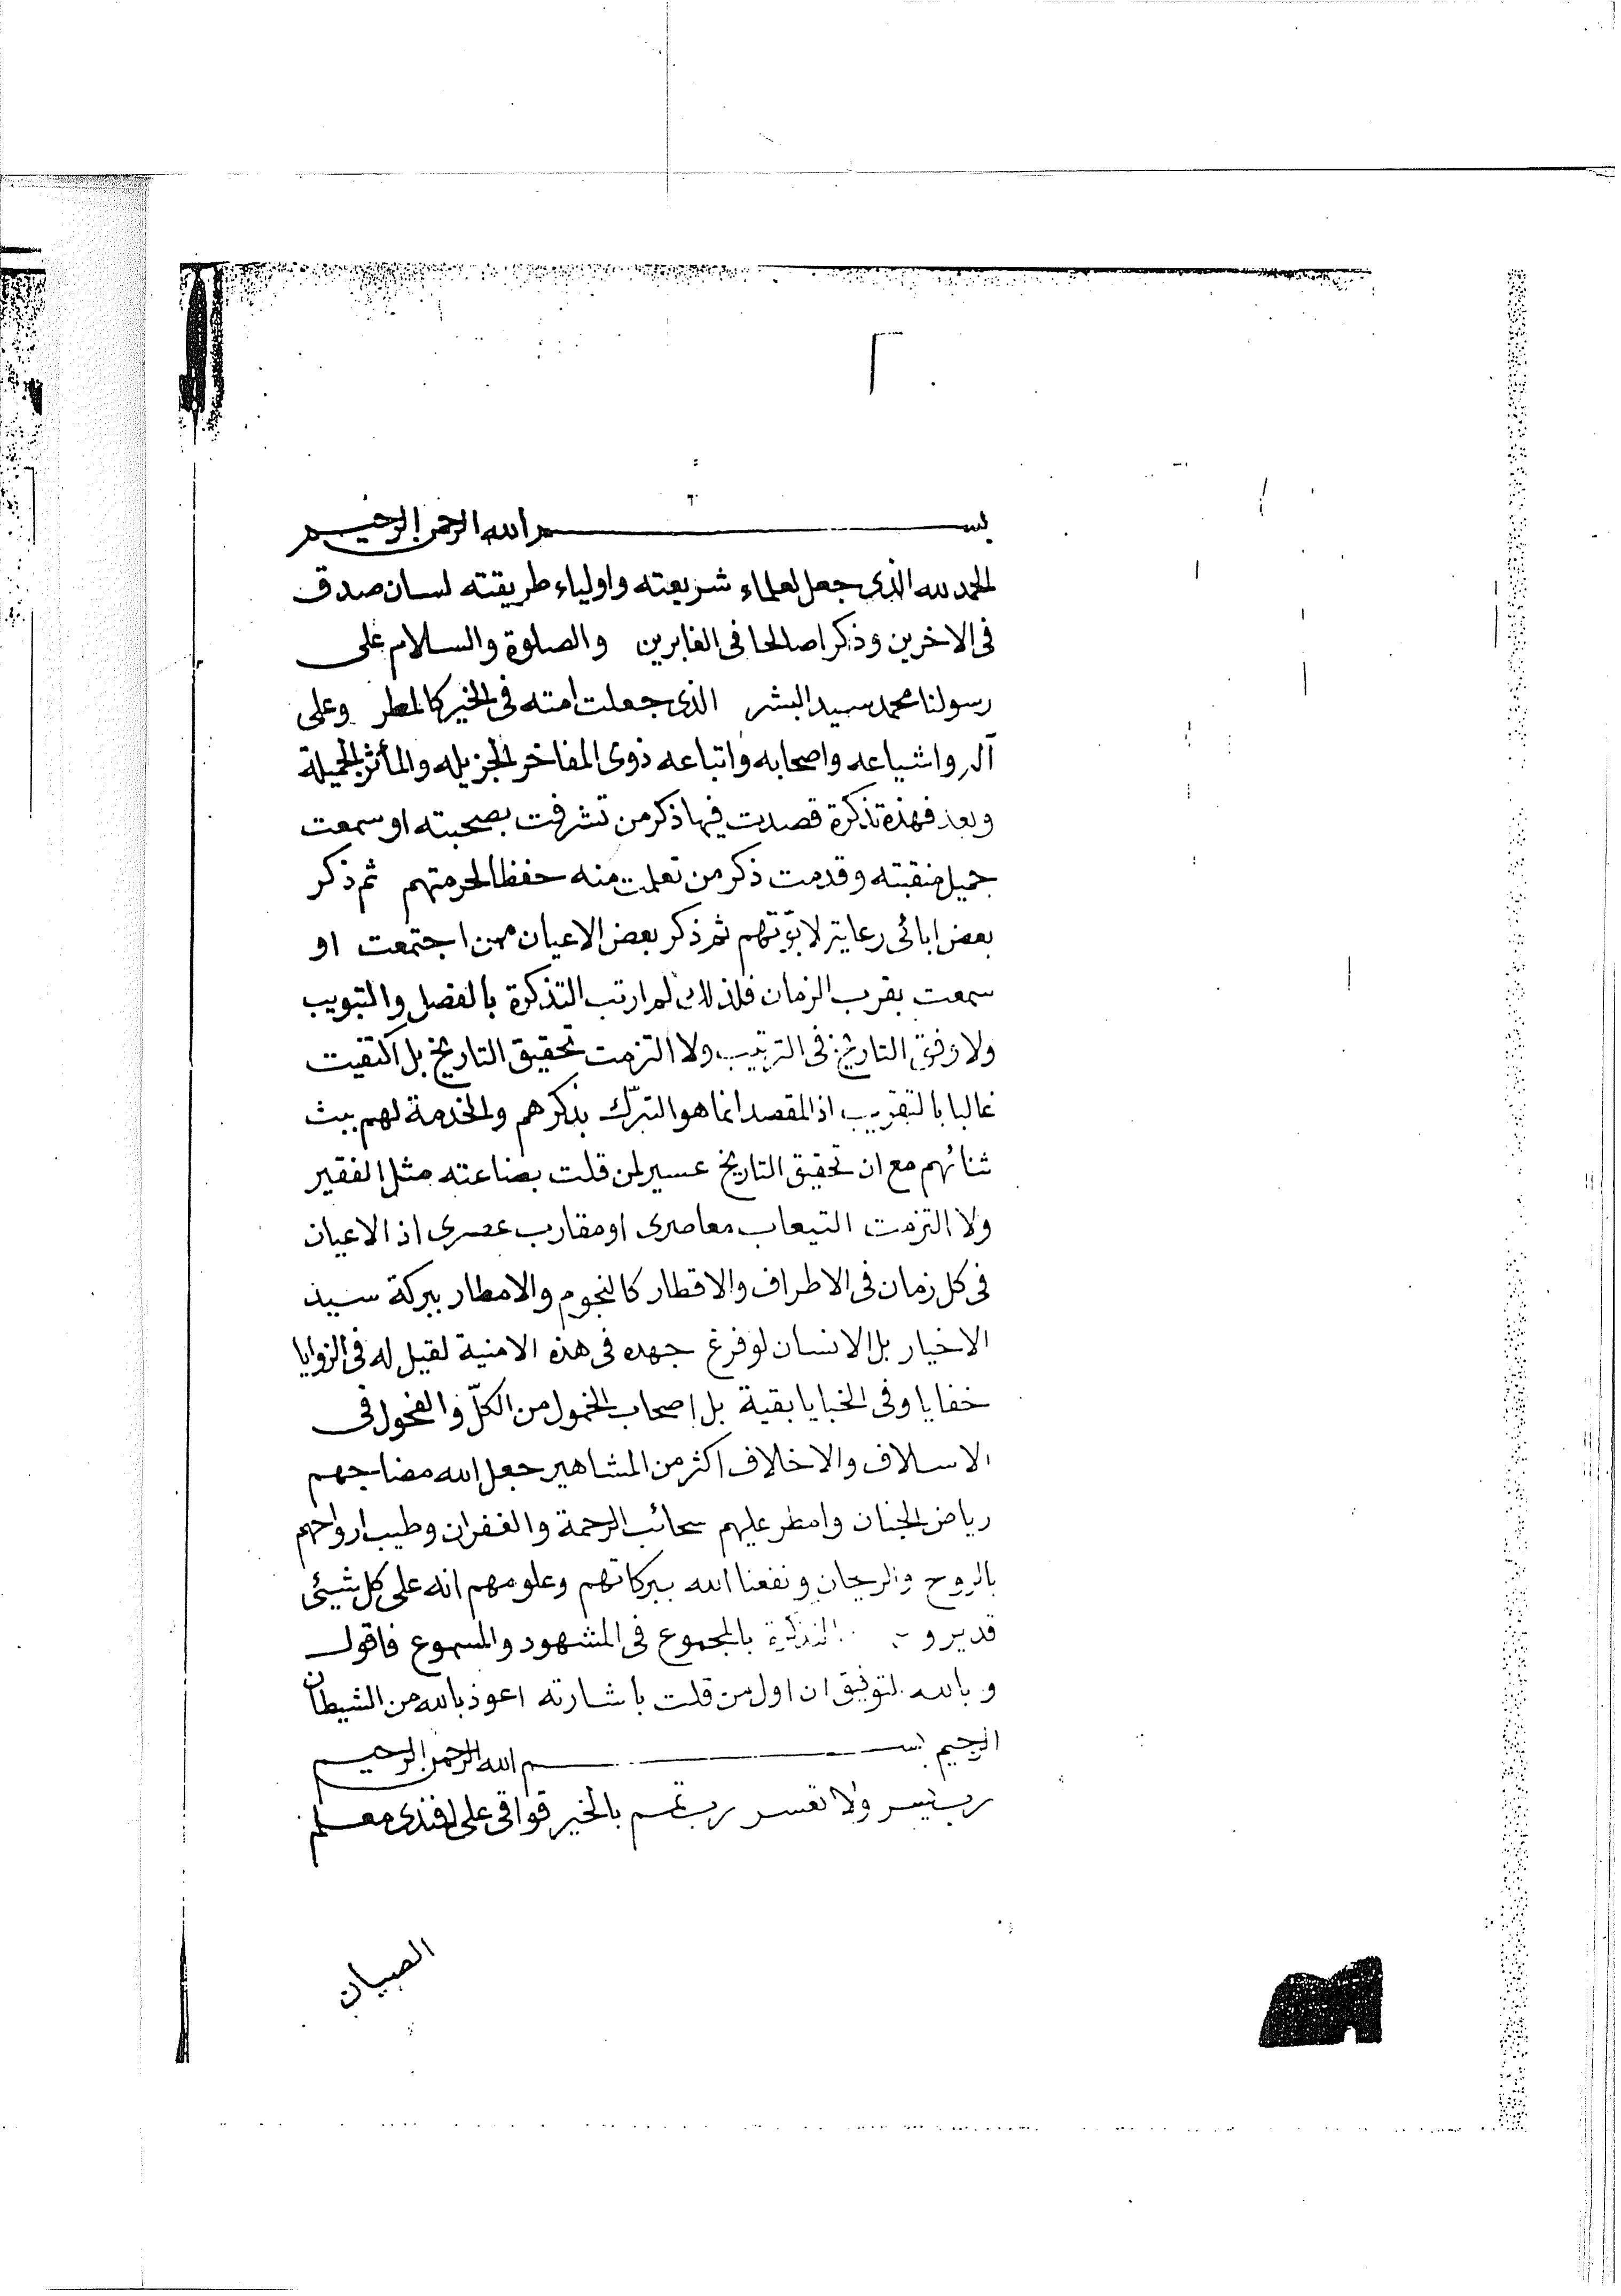 ٢
بسم الله الرحمن الرحيم
الحمد لله الذى جعل لعلماء شريعته واولياء طريقته لسان صدق
فى الاخرين وذكرا صالحا فى الغابرين والصلوة والسلام على
رسولنا محمد سيد البشر الذى جعلت امته فى الخير كالمطر وعلى
آله واشياعه واصحابه واتباعه ذوى المفاخر الجزيله والمأثر الجميلة
وبعد فهذة تذكرة قصدت فيها ذكر من تشرفت بصحبته او سمعت
جميل منقبته وقدمت ذكر من تعلمت منه حفظا لحرمتهم ثم ذكر
بعض ابائى رعاية لابوتهم ثم ذكر بعض الاعيان ممن اجتمعت او
سمعت بقرب الزمان فلذلك لم ارتب التذكرة بالفصل والتبويب
ولا وفق التاريخ فى الترتيب ولا التزمت تحقيق التاريخ بل اكتفيت
غالبا بالتقريب اذ المقصد انما هو التبرّك بذكرهم والخدمة لهم ببث
ثنائهم مع ان تحقيق التاريخ عسير لمن قلت بضاعته مثل الفقير
ولا التزمت التيعاب معاصرى او مقارب عصرى اذ الاعيان
فى كل زمان فى الاطراف والاقطار كالنجوم والامطار ببركة سيد
الاخيار بل الانسان لو فرغ جهده فى هذه الامنية لقيل له فى الزوايا
خفايا وفى الخبايا بقية بل اصحاب الخمول من الكلّ والفحول فى
الاسلاف والاخلاف اكثر من المشاهير جعل الله مضاجهم
رياض الجنان وامطر عليهم سحائب الرحمة والغفران وطيب ارواحهم
بالروح والريحان ونفعنا الله ببركاتهم وعلومهم انه على كل شيئى
قدير و التذكرة بالمجموع فى المشهود والمسموع فاقول
وبالله التوفيق ان اول من قلت باشارته اعوذ بالله من الشيطان
الرجيم بسم الله الرحمن الرحيم
رب يسر ولا تعسر رب تمم بالخير قواقى على افندى معلم
الصبيان